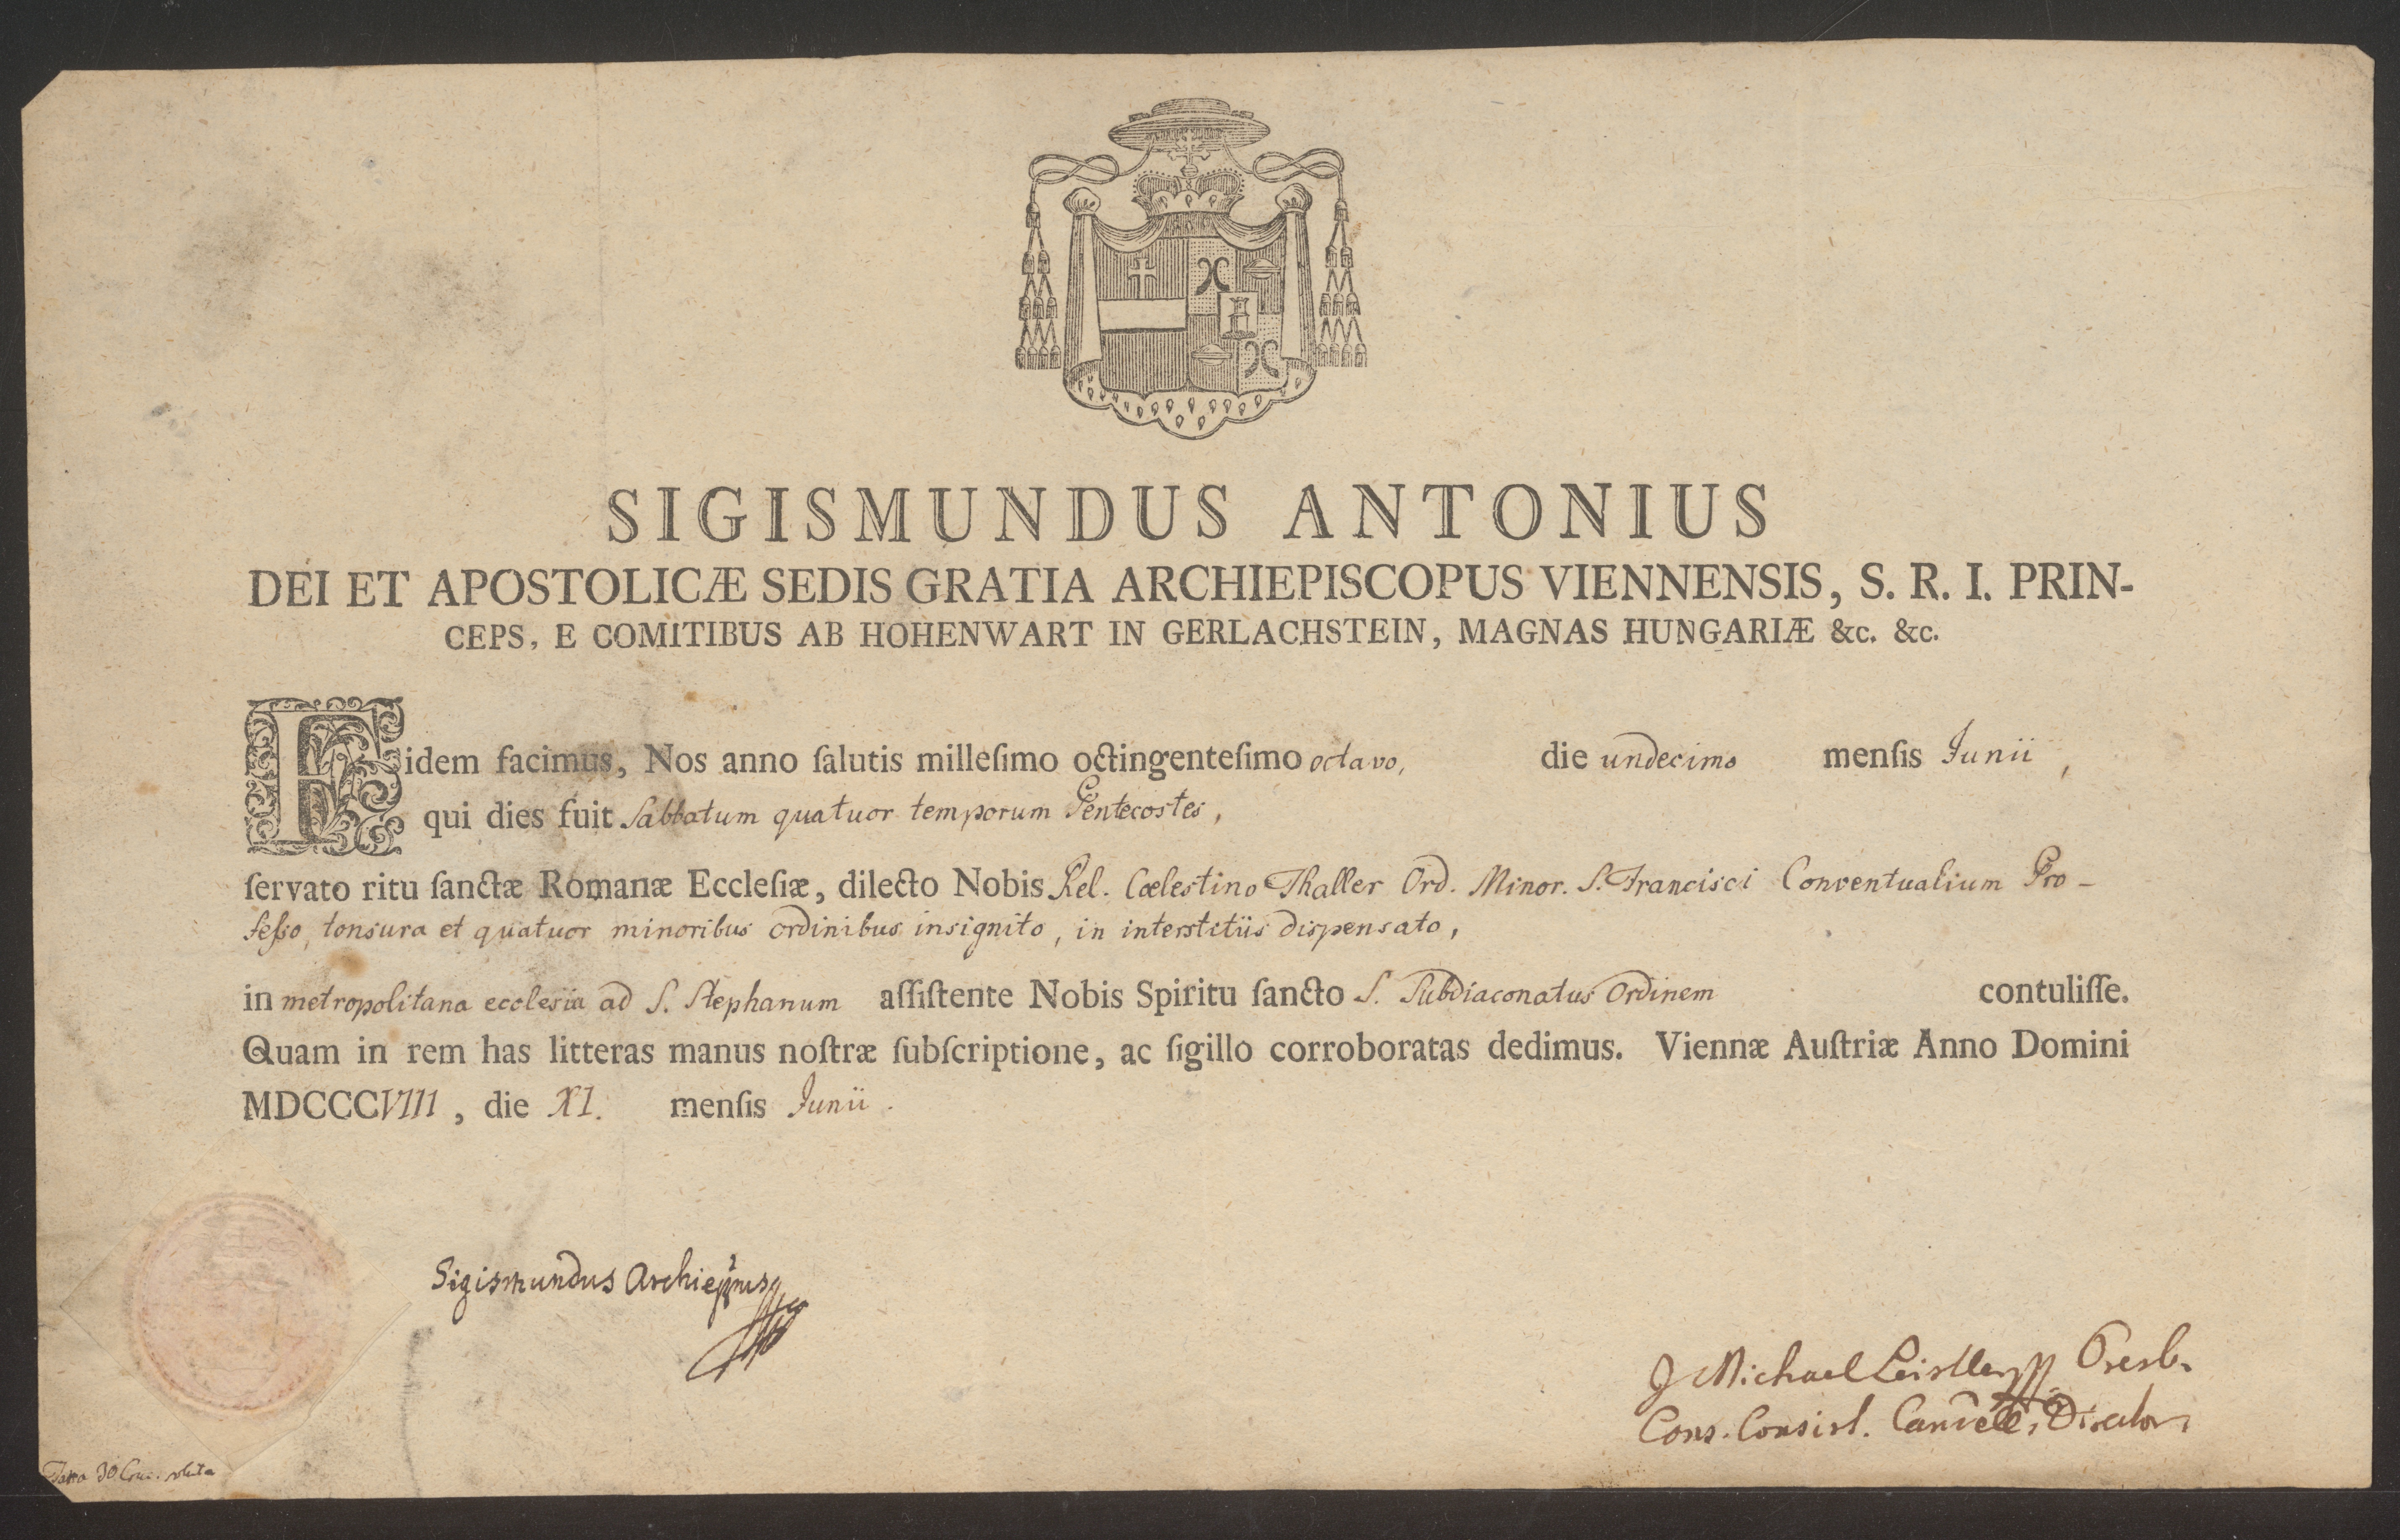 SIGISMUNDUS ANTONIUS
DEI ET APOSTOLICÆ SEDIS GRATIA ARCHIEPISCOPUS VIENNENSIS, S. R. I. PRIN-
CEPS, E COMITIBUS AB HOHENWART IN GERLACHSTEIN, MAGNAS HUNGARIÆ &c. &c.
Fidem facimus, Nos anno ſalutis milleſimo octingenteſimo octavo, die undecimo menſis Junii,
qui dies fuit Sabbatum quatuor temporum Pentecostes,
ſervato ritu ſanctæ Romanæ Eccleſiæ, dilecto Nobis Rel. Cœlestino Thaller Ord. Minor. S. Francisci Conventualium Pro-
feſso, tonsura et quatuor minoribus ordinibus insignito, in interstitiis dispensato,
in metropolitana ecclesia ad S. Stephanum aſſiſtente Nobis Spiritu ſancto S. Subdiaconatus Ordinem contuliſſe.
Quam in rem has litteras manus noſtræ ſubſcriptione, ac ſigillo corroboratas dedimus. Viennæ Auſtriæ Anno Domini
MDCCCVIII, die XI. menſis Junii.
Sigismundus Archieppus
J Michael Leistler Presb.
Cons. Consist. Cancell. Director
Taxa 30 Cruc. soluta